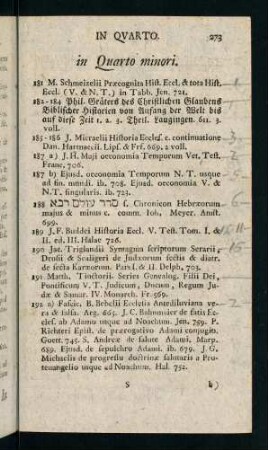 IN QVARTO. 273
in Quarto minori.
181 M. Schmeizelii Præcognita Hist. Eccl. & tota Hist.
Eccl. (V. & N. T.) in Tabb. Jen. 721.
182-184 Phil. Gräters des Christlichen Glaubens
Biblischer Historien von Anfang der Welt bis
auf diese Zeit 1. 2. 3. Theil. Laugingen. 611. 3.
voll.
185-186 J. Micraelii Historia Eccles. c. continuatione
Dan. Hartnac.ii. Lips. & Frf. 669. 2 voll.
187 a) J. H. Maji oeconomia Temporum Vet. Test.
Franc. 706.
187 b) Ejusd. oeconomia Temporum N. T. usque
ad fin. mundi. ib. 708. Ejusd. oeconomia V. &
N. T. singularis. ib. 721.
188 סדר עולם רבא s. Chronicon Hebræorum
majus & minus c. comm. Joh. Meyer. Amst.
699.
189 J. F. Buddei Historia Eccl. V. Test. Tom. I. &
II. ed. III. Halae 726.
190 Jac. Triglandii Syntagma scriptorum Serarii,
Drusii & Scaligeri de Judæorum sectis & diatr.
de secta Karræorum. Pars I. & II. Delph. 703.
191 Matth. Tinctorii. Series Genealog. Filii Dei,
Pontificum V. T. Judicum, Ducum, Regum Ju-
dæ & Samar. IV. Monarch. Ff. 569.
192 a) Fascic. B. Bebelii Ecclesia Antediluviana ve-
ra & falsa. Arg. 665. J. C. Bahnmaier de fatis Ec-
cles. ab Adamo usque ad Noachum. Jen. 759. P.
Kichneri Epist. de prærogativo Adami conjugio.
Guerr. 745. S. Andreæ de salute Adami. Marp.
689. Ejusd. de sepulchro Adami. ib. 679. J. G.
Michaelis de progressu doctrinæ salutaris a Pro-
teuangelio usque ad Noachum. Hal. 752.
S b)